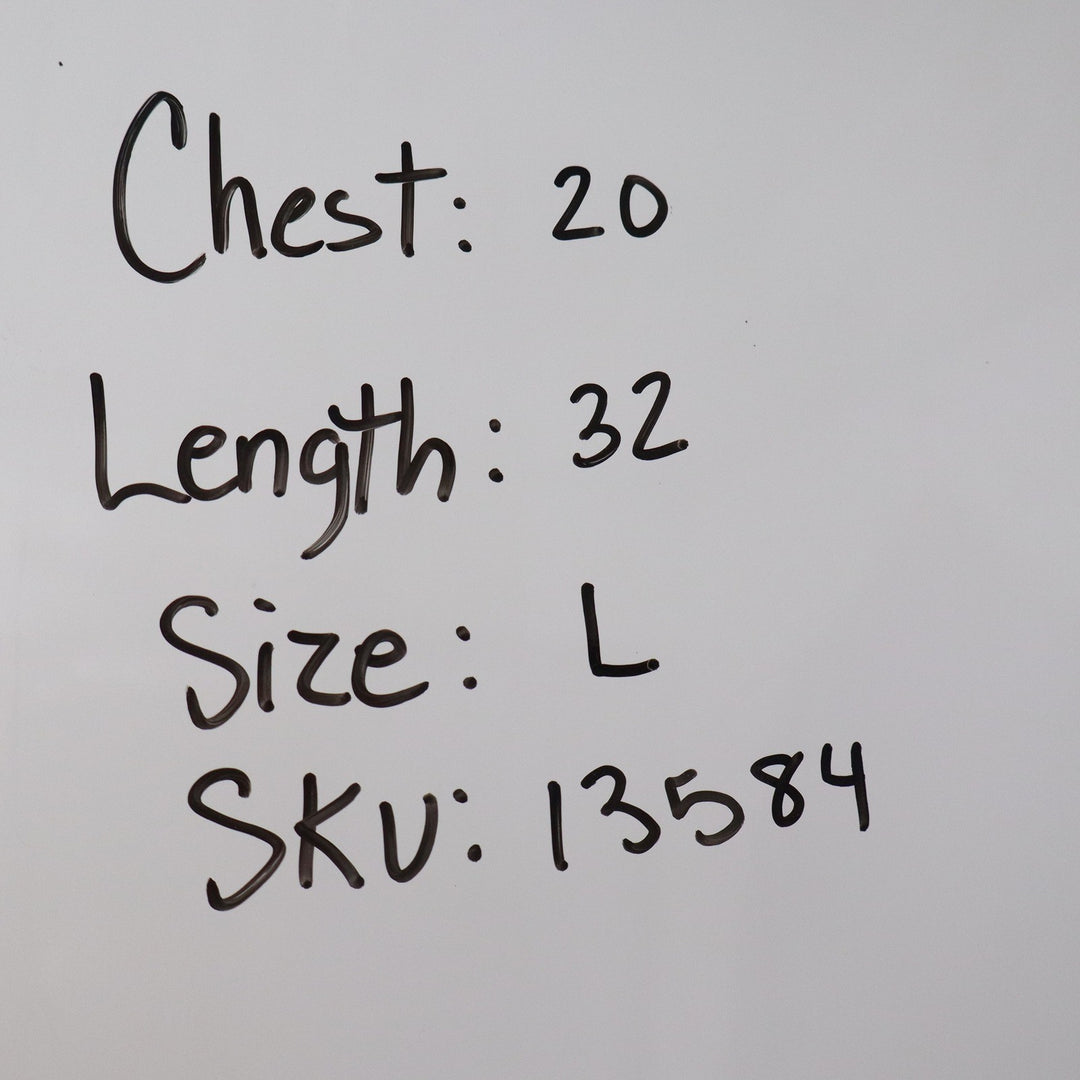 Chest: 20
Length: 32
Size: L
SKU: 13584